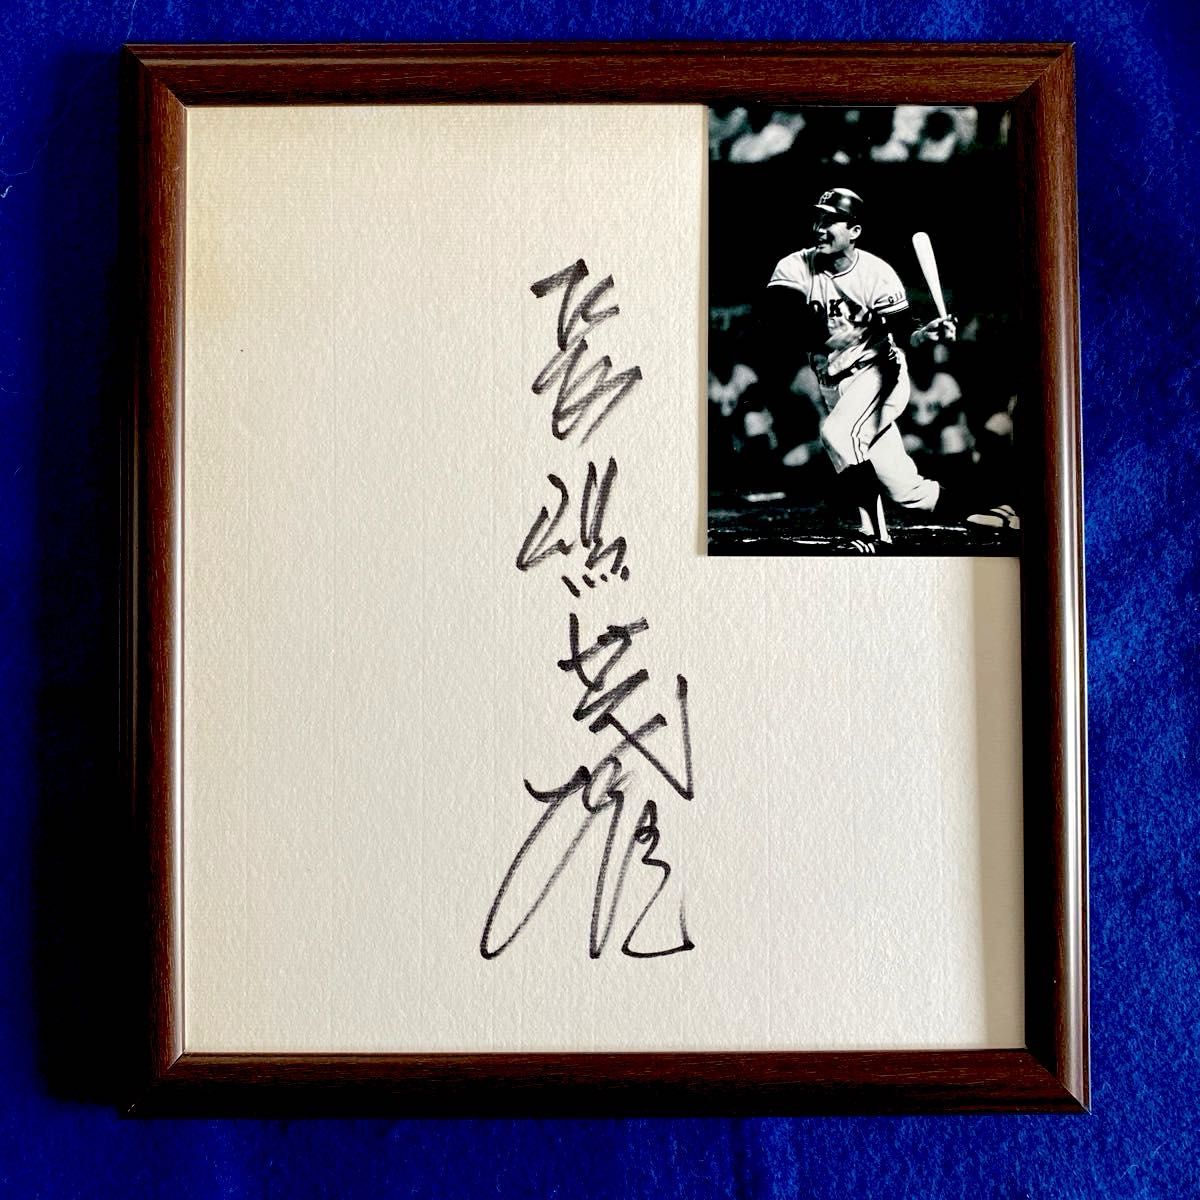 長嶋茂雄
TOKYO